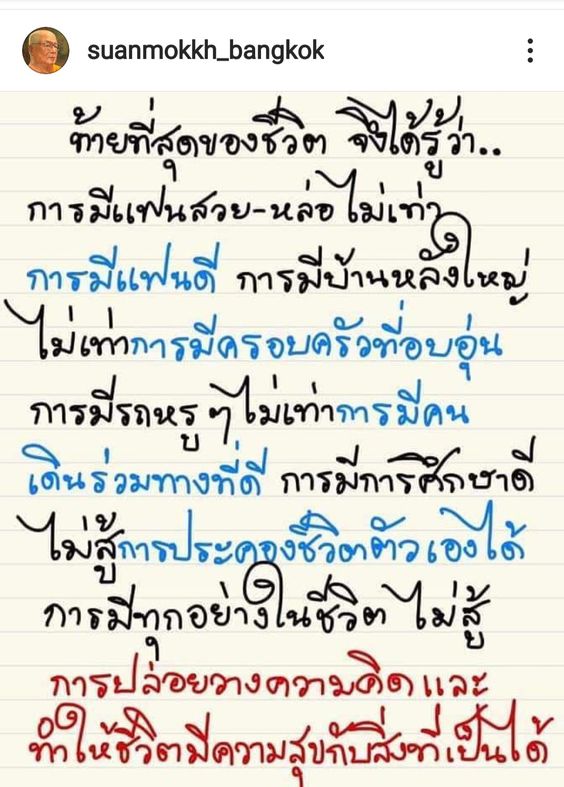 suanmokkh_bangkok
ท้ายที่สุดของชีวิต จึงได้รู้ว่า..
การมีแฟนสวย-หล่อ ไม่เท่า
การมีแฟนดี การมีบ้านหลังใหญ่
ไม่เท่าการมีครอบครัวที่อบอุ่น
การมีรถหรู ๆ ไม่เท่าการมีคน
เดินร่วมทางที่ดี การมีการศึกษาดี
ไม่สู้การประคองชีวิตตัวเองได้
การมีทุกอย่างในชีวิต ไม่สู้
การปล่อยวางความคิด และ
ทำให้ชีวิตมีความสุขกับสิ่งที่เป็นได้